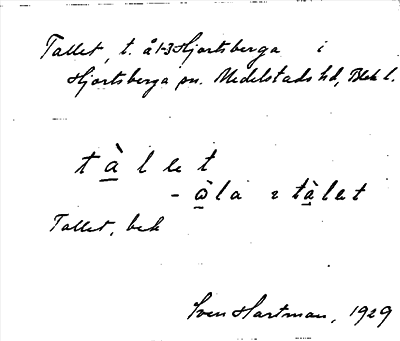 Tallet, t. å 1-3 Hjortsberga i
Hjortsberga sn. Medelstads hd, Blek l.
tàlet
- àla i tàlet
Tallet, bek
Sven Hartman, 1929